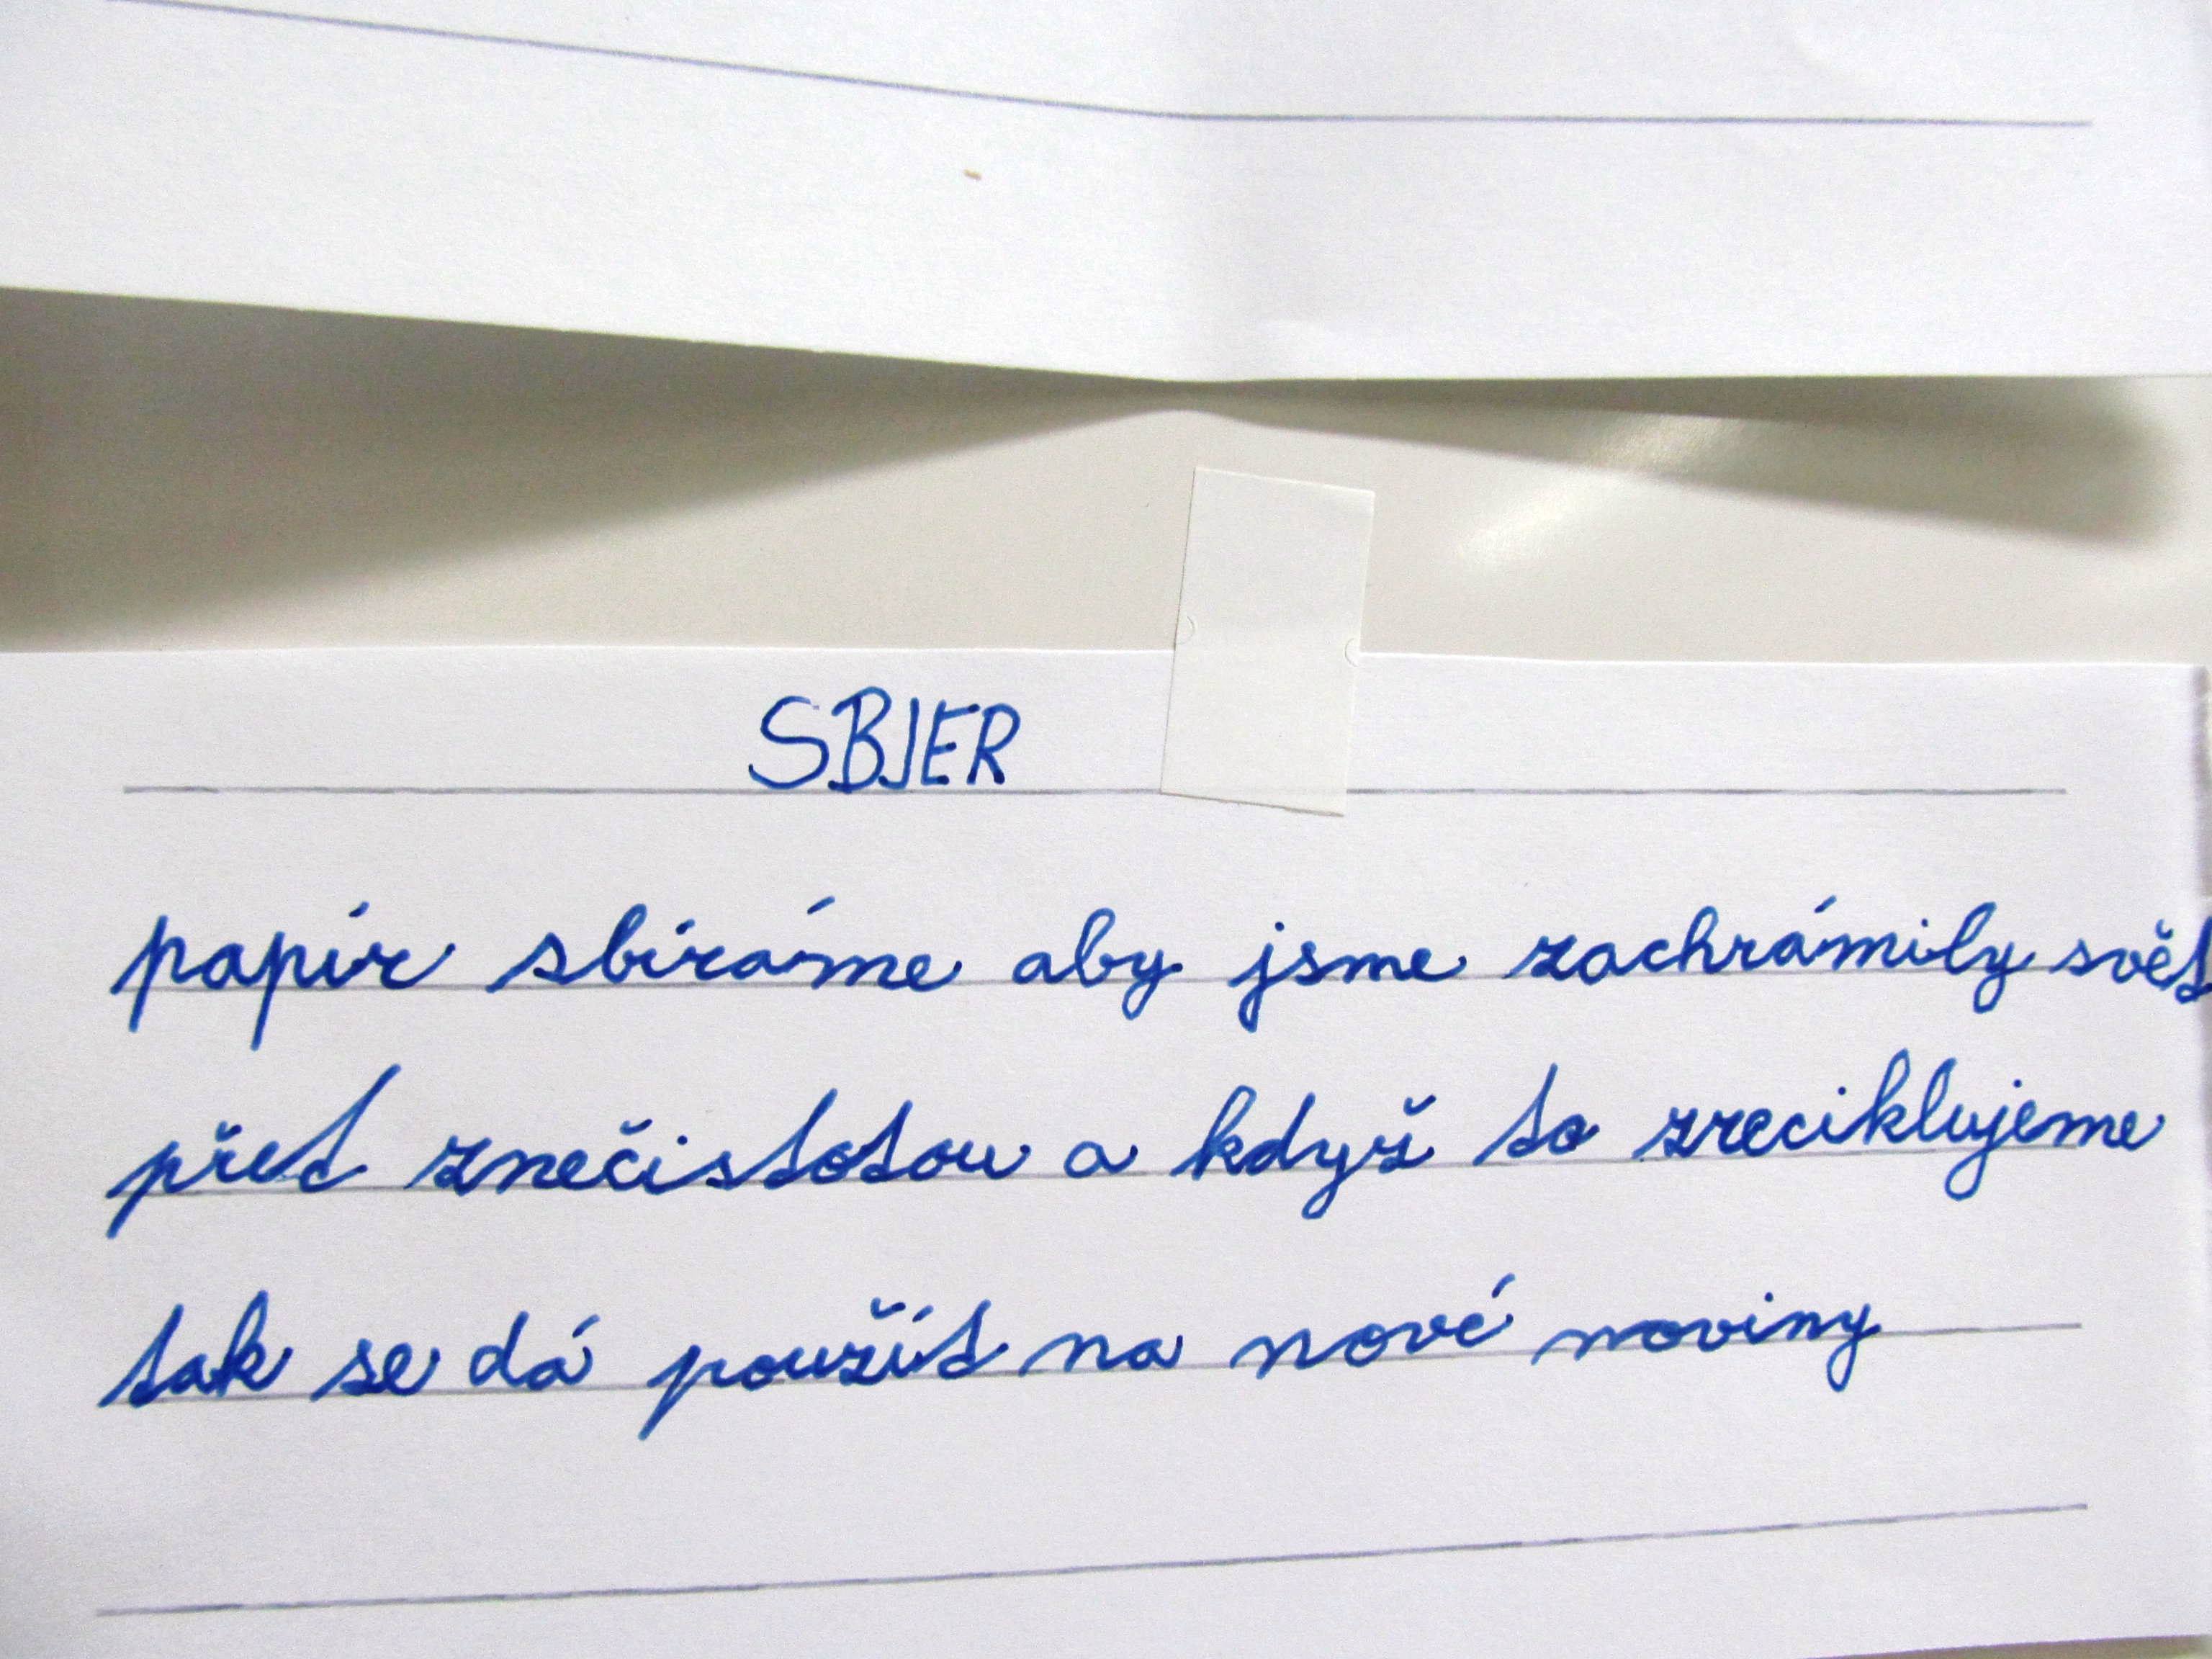 SBJER
papír sbíráme aby jsme zachránily svět
přet znečistotou a když to zreciklujeme
tak se dá použít na nové noviny